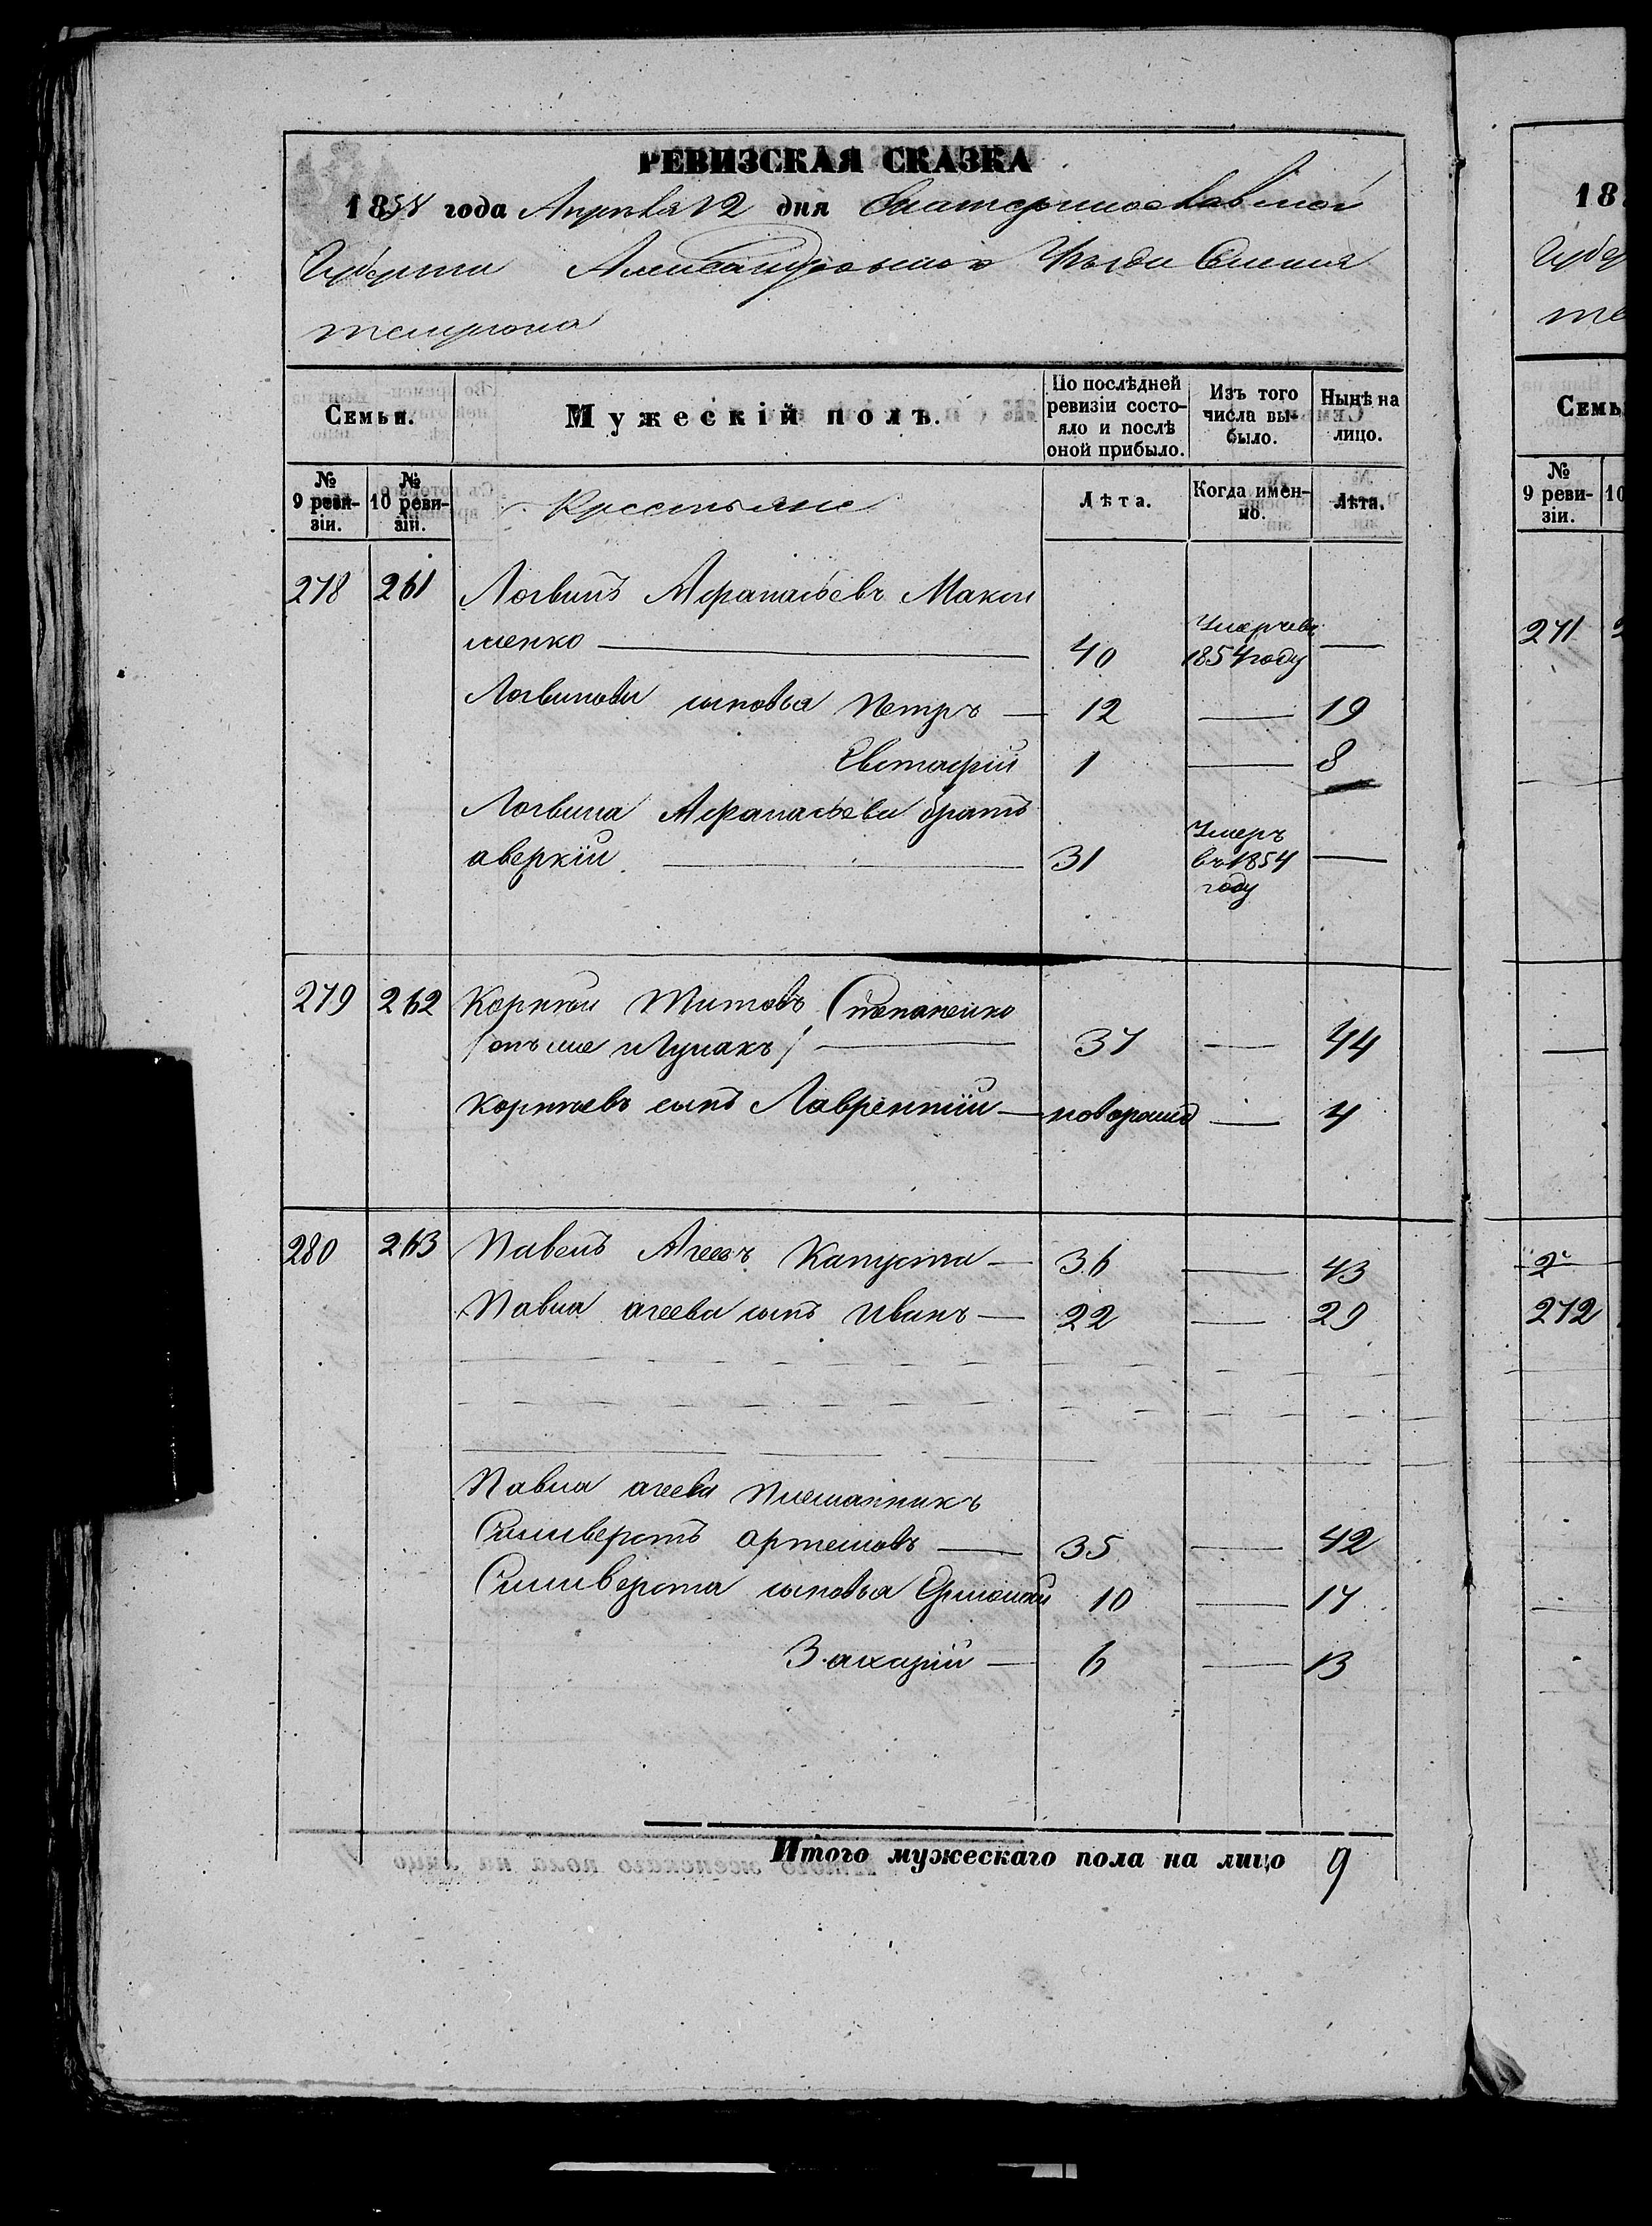 РЕВИЗСКАЯ СКАЗКА
1858 года Апреля 12 дня Екатеринославской
Губернии Александровского Уезда Селения
темрюка
Семьи.
Мужескій полъ.
По послѣдней ревизіи состо-яло и послѣ оной прибыло.
Изъ того числа вы-было.
Нынѣ на лицо.
№ 9 реви-зіи.
№ 10 реви-зіи.
Крестьяне
Лѣта.
Когда имен-но.
Лѣта.
278 261 Логвинъ Афанасьевъ Макси
менко — 40 Умеръ въ 1854 году —
Логвиновы сыновья Петръ — 12 — 19
Евстафій 1 — 8
Логвина Афанасьева братъ
аверкій — 31 Умеръ въ 1854 году —
279 262 Корній Титовъ Степаненко
/онъ же Чумакъ/ — 37 — 44
Корніевъ сынъ Лаврентій — новорожд — 4
280 263 Павелъ Агеевъ Капуста — 36 — 43
Павла агеева сынъ Иванъ — 22 — 29
Павла агеева племянникъ
Силиверстъ артемовъ — 35 — 42
Силиверста сыновья 10 — 17
Захарій — 6 — 13
Итого мужескаго пола на лицо 9
18
Губер
те
Семь
№ 9 реви-зіи.
10
271
272